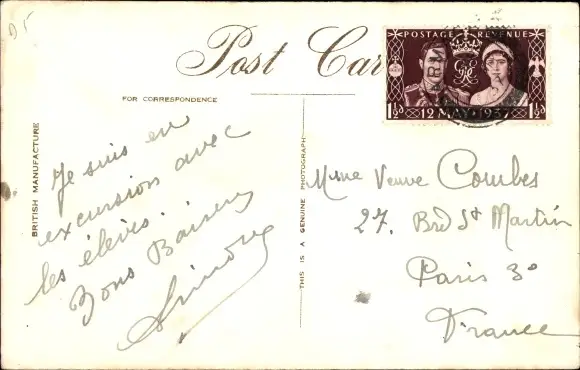 D5
Post Car
POSTAGE REVENUE
1½d 12 MAY 1937 1½d
FOR CORRESPONDENCE
BRITISH MANUFACTURE
THIS IS A GENUINE PHOTOGRAPH
Je suis en
excursion avec
les élèves.
Bons Baisers
Mme Veuve Combes
27. Brd St Martin
Paris 3e
France